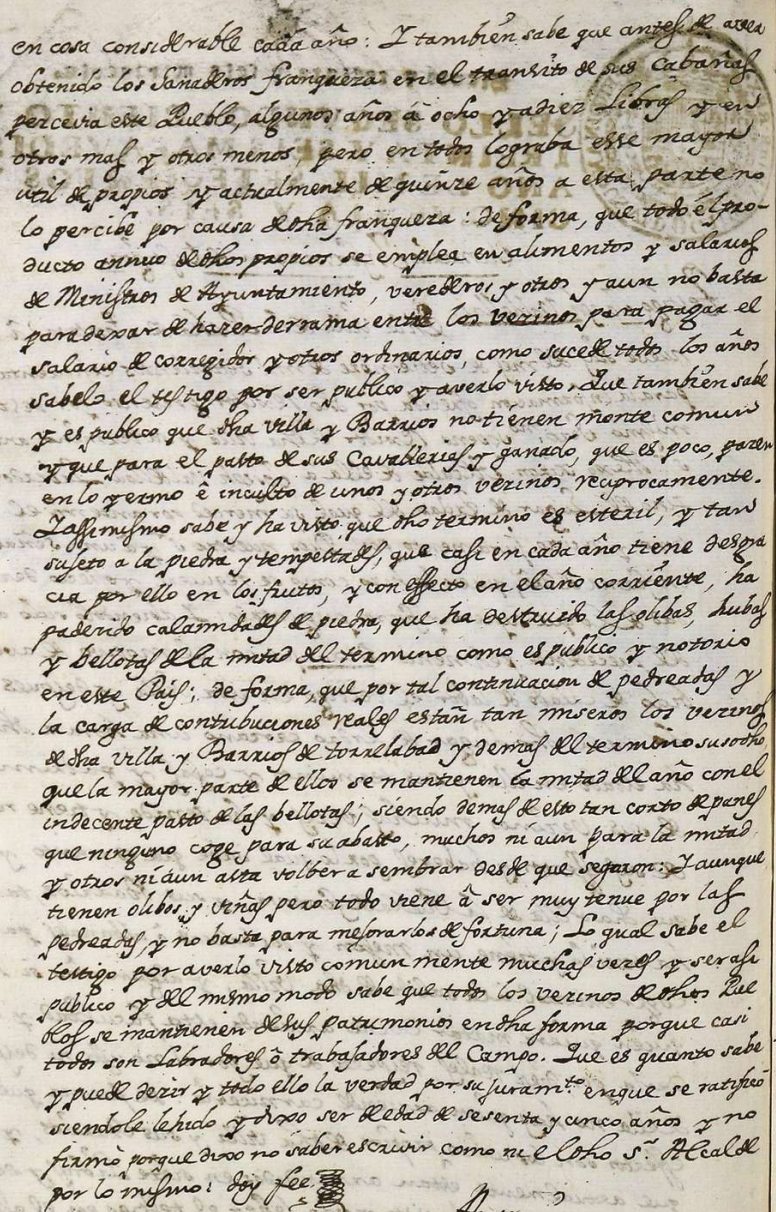 en cosa considerable cada año: Y tambien sabe que antes de aver
obtenido los Ganaderos franqueza en el transito de sus Cabañas
percevia este Pueblo, algunos años â ocho y a diez Libras y en
otros mas y otros menos, pero en todos lograba esse mayor
util de propios y actualmente de quinze años a esta parte no
lo percibe por causa de dha franqueza: de forma, que todo el pro-
ducto annuo de dhos propios se emplea en alimentos y salarios
de Ministros de Ayuntamiento, verederos y otros y aun no basta
para dexar de hazer derrama entre los vezinos para pagar el
salario de corregidor y otros ordinarios, como sucede todos los años
sabelo el testigo por ser publico y averlo visto. Que tambien sabe
y es publico que dha villa y Barrios no tienen monte comun
y que para el pasto de sus Cavallerias y ganado, que es poco, pazen
en lo yermo ê inculto de unos y otros vezinos reciprocamente.
Y assimismo sabe y ha visto que dho termino es esteril, y tan
sujeto a la piedra y tempestades, que casi en cada año tiene desgra
cia por ello en los frutos, y con effecto en el año corriente, ha
padezido calamidades de piedra, que ha destruido las olibas, hubas
y bellotas de la mitad del termino como es publico y notorio
en este Pais; de forma, que por tal continuacion de pedreadas y
la carga de contribuciones reales estan tan miseros los vezinos
de dha villa y Barrios de torrelabad y demas del termino susodho,
que la mayor parte de ellos se mantienen la mitad del año con el
indecente pasto de las bellotas; siendo demas de esto tan corto de panes
que ninguno coge para su abasto, muchos ni aun para la mitad,
y otros ni aun asta volber a sembrar desde que segaron: Y aunque
tienen olibos y viñas pero todo viene â ser muy tenue por las
pedreadas, y no basta para mejorarlos de fortuna; Lo qual sabe el
testigo por averlo visto comunmente muchas vezes y ser asi
publico y del mismo modo sabe que todos los vezinos de dhos Pue
blos se mantienen de sus patrimonios en dha forma porque casi
todos son Labradores ô trabajadores del Campo. Que es quanto sabe
y puede dezir y todo ello la verdad por su juramto en que se ratificó
siendole lehido y dixo ser de edad de sesenta y cinco años y no
firmó porque dixo no saber escrivir como ni el dho Sr. Alcalde
por lo mismo: doy fee.